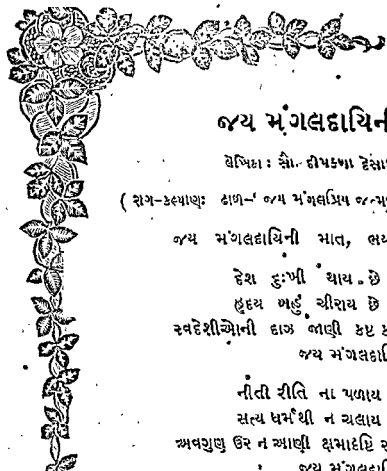 જય મંગલદાયિની
લેખિકા: સૌ. દીપકબા દેસા
( રાગ-કલ્યાણ: ઢાળ-‘ જય મંગલપ્રિય જન્મ
જય મંગલદાયિની માત, ભય
દેશ દુઃખી થાય છે
હૃદય બહું ચીરાય છે
સ્વદેશીઓની દાઝ જાણી કષ્ટ ક
જય મંગલદાયિ
નીતી રીતિ ના પળાય
સત્ય ધર્મથી ન ચલાય
અવગુણ ઉર ન આણી ક્ષમાદૃષ્ટિ
જય મંગલદાયિ